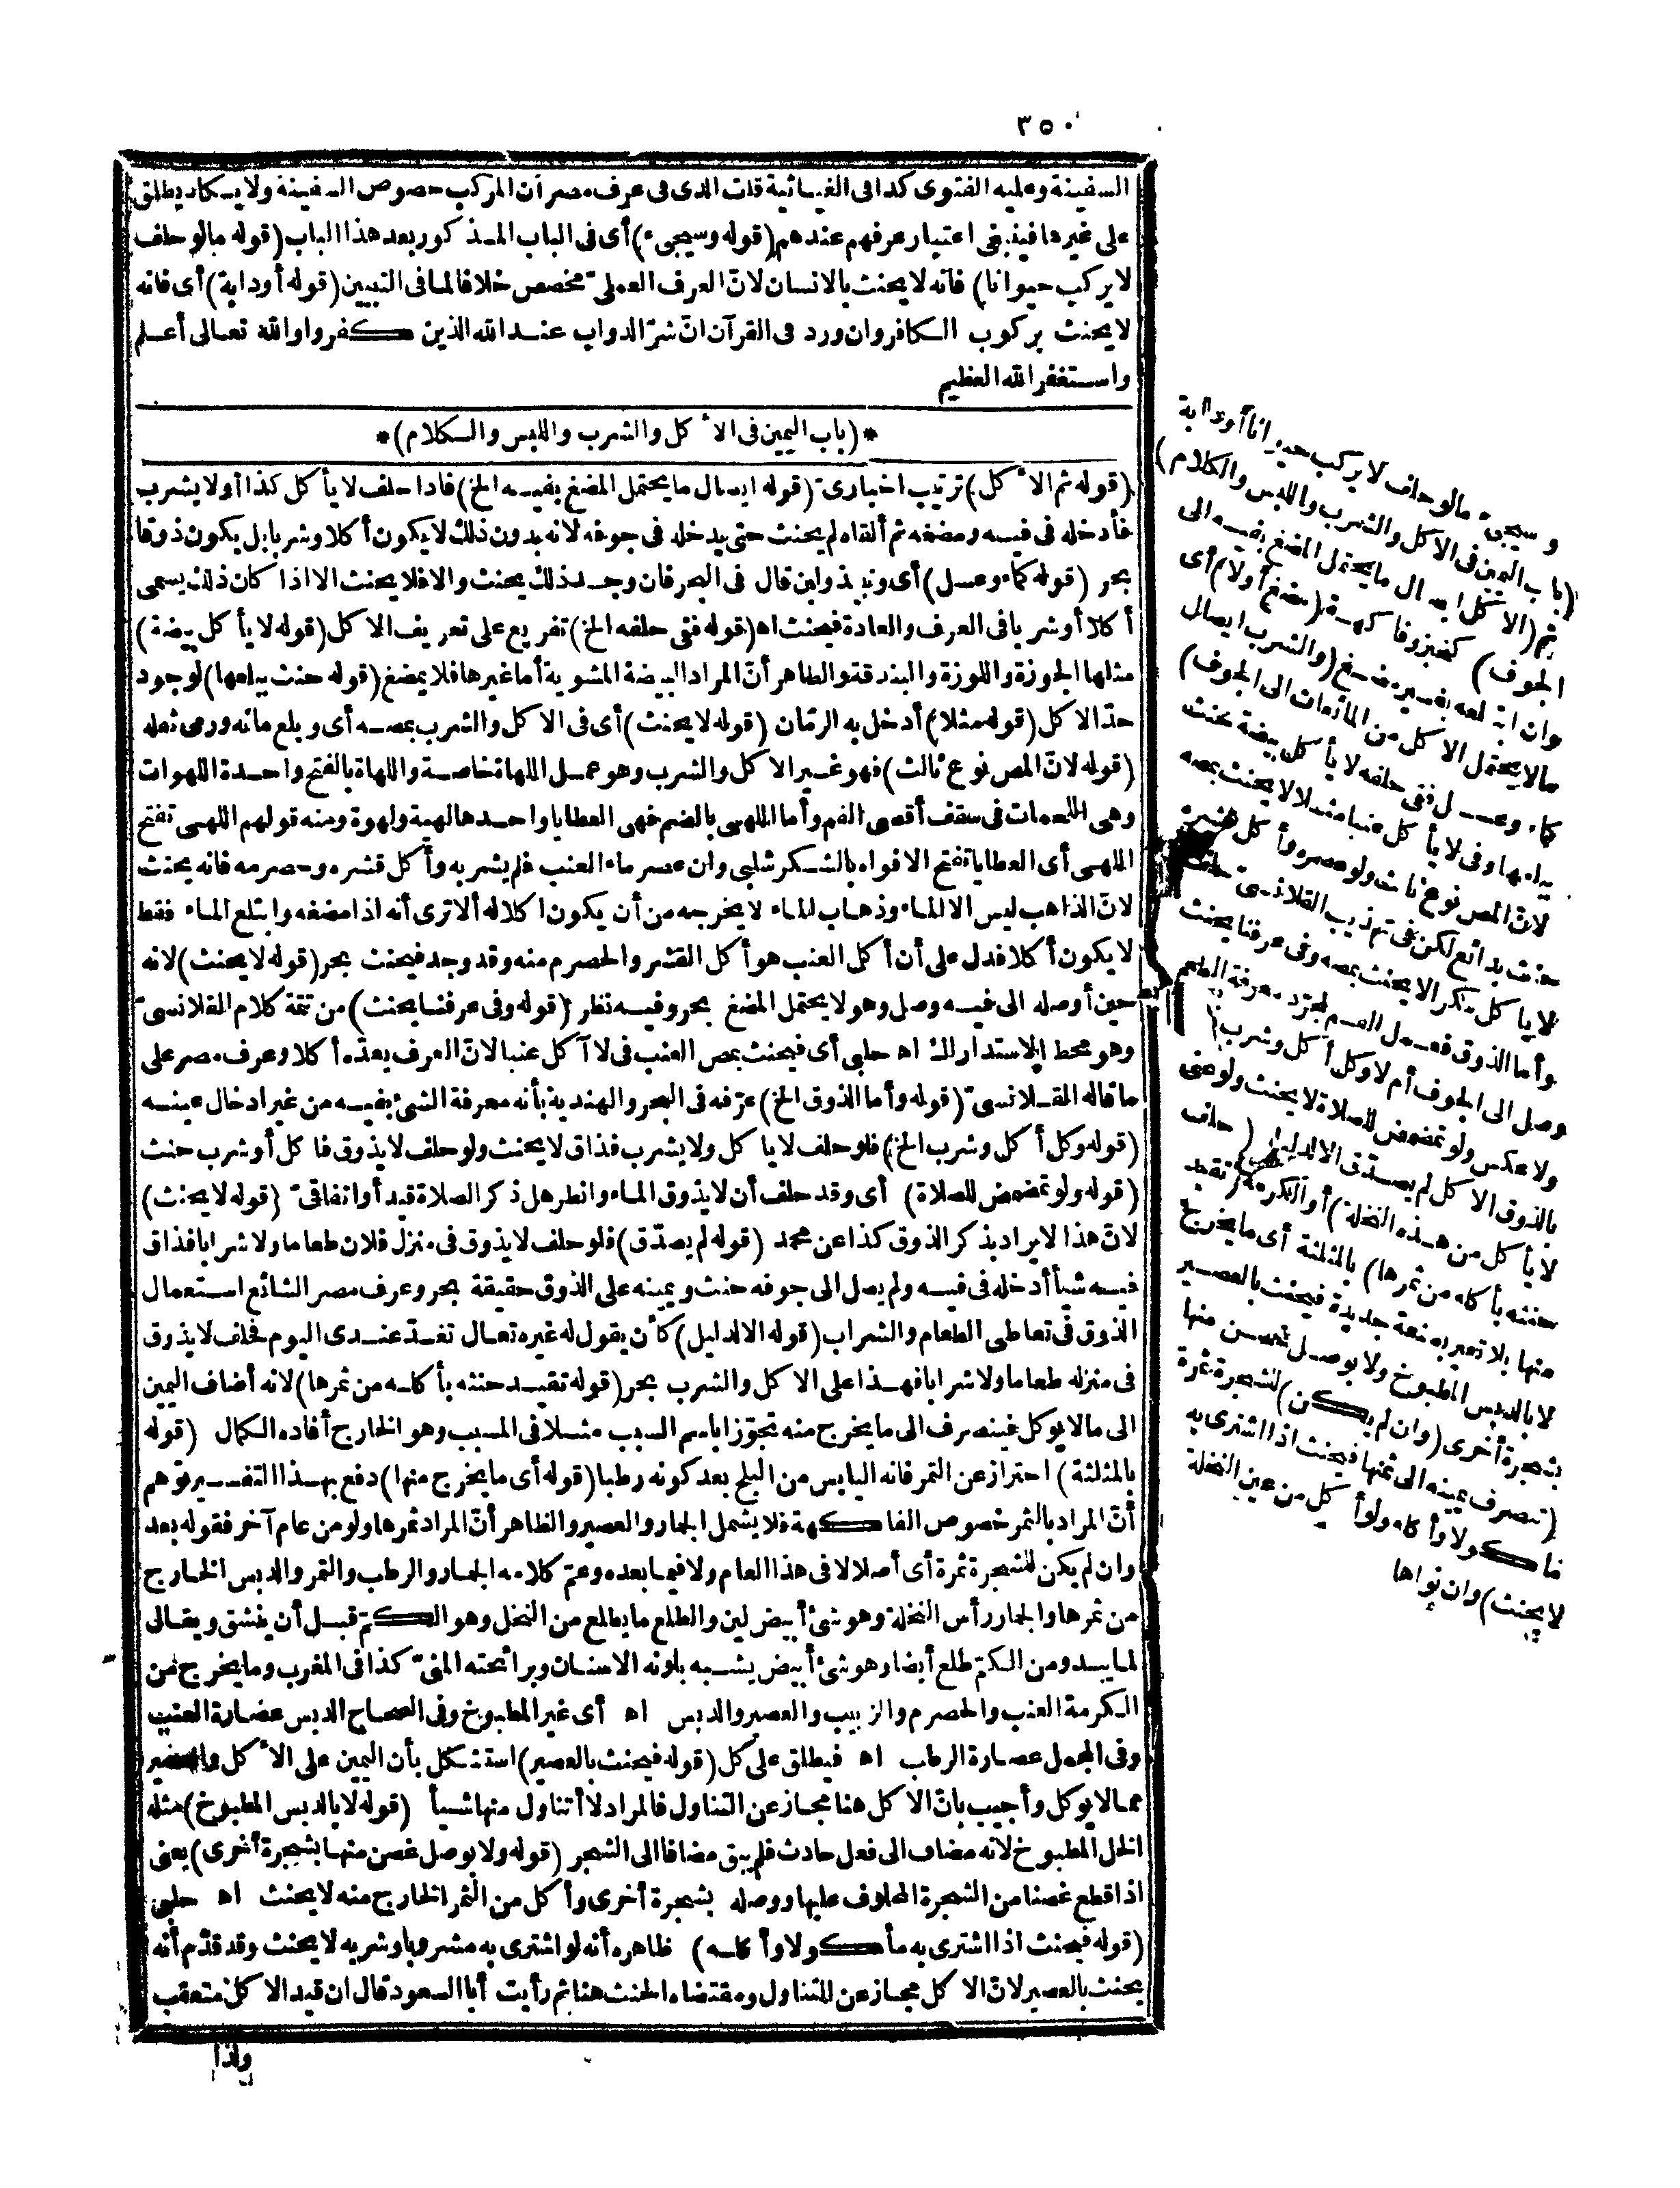 ٣٥٠
السفينة وعليه الفتوى كذا فى الغياثية قلت الذى فى عرف مصر أن المركب خصوص السفينة ولا يكاد يطلق
على غيرها فينبغى اعتبار عرفهم عندهم (قوله وسيجىء) أى فى الباب المذكور بعد هذا الباب (قوله مالو حلف
لا يركب حيوانا) فانه لا يحنث بالانسان لانّ العرف العملىّ مخصص خلافا لما فى التبيين (قوله أو دابة) أى فانه
لا يحنث بركوب الكافر وان ورد فى القرآن انّ شرّ الدواب عند الله الذين كفروا والله تعالى أعلم
واستغفر الله العظيم
*(باب اليمين فى الأكل والشرب واللبس والكلام)*
(قوله ثم الأكل) ترتيب اخبارىّ (قوله ايصال ما يحتمل المضغ بفيه الخ) فاذا حلف لا يأكل كذا أو لا يشرب
فأدخله فى فيه ومضغه ثم ألقاه لم يحنث حتى يدخله فى جوفه لانه بدون ذلك لا يكون أكلا وشربا بل يكون ذوقا
بحر (قوله كماء وعسل) أى ونبيذ ولبن قال فى البحر فان وجد ذلك يحنث والا فلا يحنث الا اذا كان ذلك يسمى
أكلا أو شربا فى العرف والعادة فيحنث اه (قوله ففى حلفه الخ) تفريع على تعريف الاكل (قوله لا يأكل بيضة)
مثلها الجوزة واللوزة والبندقة والظاهر أنّ المراد البيضة المشوية أما غيرها فلا يمضغ (قوله حنث ببلعها) لوجود
حدّ الاكل (قوله مثلا) أدخل به الرمّان (قوله لا يحنث) أى فى الاكل والشرب بمصه أى وبلع مائه ورمى ثفله
(قوله لانّ المص نوع ثالث) فهو غير الاكل والشرب وهو عمل اللهاة خاصة واللهاة بالفتح واحدة اللهوات
وهى اللحمات فى سقف أقصى الفم وأما اللهى بالضم فهى العطايا واحدها لهية ولهوة ومنه قولهم اللهى تفتح
اللهى أى العطايا تفتح الافواه بالشكر شلبى وان عصر ماء العنب فلم يشربه وأكل قشره وحصرمه فانه يحنث
لانّ الذاهب ليس الا الماء وذهاب الماء لا يخرجه من أن يكون اكلا له ألا ترى أنه اذا مضغه وابتلع الماء فقط
لا يكون أكلا فدل على أن أكل العنب هو أكل القشر والحصرم منه وقد وجد فيحنث بحر (قوله لا يحنث) لانه
حين أوصله الى فيه وصل وهو لا يحتمل المضغ بحر وفيه نظر (قوله وفى عرفنا يحنث) من تتمة كلام القلانسىّ
وهو محط الاستدراك اه حلبى أى فيحنث بمص العنب فى لا آكل عنبا لانّ العرف يعدّه أكلا وعرف مصر على
ما قاله القلانسىّ (قوله وأما الذوق الخ) عرّفه فى البحر والهندية بأنه معرفة الشئ بفيه من غير ادخال عينه
(قوله وكل أكل وشرب الخ) فلو حلف لا ياكل ولا يشرب فذاق لا يحنث ولو حلف لا يذوق فاكل أو شرب حنث
(قوله ولو تمضمض للصلاة) أى وقد حلف أن لا يذوق الماء وانظر هل ذكر الصلاة قيد أو اتفاقىّ (قوله لا يحنث)
لانّ هذا لا يراد بذكر الذوق كذا عن محمد (قوله لم يصدّق) فلو حلف لا يذوق فى منزل فلان طعاما ولا شرابا فذاق
فيه شيأ أدخله فى فيه ولم يصل الى جوفه حنث ويمينه على الذوق حقيقة بحر وعرف مصر الشائع استعمال
الذوق فى تعاطى الطعام والشراب (قوله الا لدليل) كأن يقول له غيره تعال تغدّ عندى اليوم فحلف لا يذوق
فى منزله طعاما ولا شرابا فهذا على الاكل والشرب بحر (قوله تقيد حنثه بأكله من ثمرها) لانه أضاف اليمين
الى ما لا يوكل فينصرف الى ما يخرج منه تجوّزا باسم السبب مثلا فى المسبب وهو الخارج أفاده الكمال (قوله
بالمثلثة) احتراز عن التمر فانه اليابس من البلح بعد كونه رطبا (قوله أى ما يخرج منها) دفع بهذا التفسير توهم
أنّ المراد بالثمر خصوص الفاكهة فلا يشمل الجمار والعصير والظاهر أنّ المراد ثمرها ولو من عام آخر فقوله بعد
وان لم يكن للشجرة ثمرة أى أصلا لا فى هذا العام ولا فيما بعده وعمّ كلامه الجمار والرطب والتمر والدبس الخارج
من ثمرها والجمار رأس النخلة وهو شئ أبيض لين والطلع ما يطلع من النخل وهو الكمّ قبل أن ينشق ويقال
لما يبدو من الكمّ طلع أيضا وهو شئ أبيض يشبه بلونه الاسنان وبرائحته المنىّ كذا فى المغرب وما يخرج من
الكرمة العنب والحصرم والزبيب والعصير والدبس اه أى غير المطبوخ وفى الصحاح الدبس عصارة العنب
وفى المجمل عصارة الرطب اه فيطلق على كل (قوله فيحنث بالعصير) استشكل بأن اليمين على الأكل والعصير
مما لا يوكل وأجيب بانّ الاكل هنا مجاز عن التناول فالمراد لا أتناول منها شيأ (قوله لا بالدبس المطبوخ) مثله
الخل المطبوخ لانه مضاف الى فعل حادث فلم يبق مضافا الى الشجر (قوله ولا بوصل غصن منها بشجرة أخرى) يعنى
اذا قطع غصنا من الشجرة المحلوف عليها ووصله بشجرة أخرى وأكل من الثمر الخارج منه لا يحنث اه حلبى
(قوله فيحنث اذا اشترى به مأكولا وأكله) ظاهره أنه لو اشترى به مشروبا وشربه لا يحنث وقد قدّم أنه
يحنث بالعصير لانّ الاكل مجاز عن التناول ومقتضاه الحنث هنا ثم رأيت أبا السعود قال ان قيد الاكل متعقب
ولذا
وسيجىء مالو حلف لا يركب حيوانا أو دابة
(باب اليمين فى الاكل والشرب واللبس والكلام)
ثم (الاكل ايصال ما يحتمل المضغ بفيه الى
الجوف) كخبز وفاكهة (مضغ أو لا) أى
وان ابتلعه بغير مضغ (والشرب ايصال
مالا يحتمل الاكل من المائعات الى الجوف)
كماء وعسل ففى حلفه لا يأكل بيضة حنث
ببلعها وفى لا يأكل عنبا مثلا لا يحنث بمصه
لانّ المص نوع ثالث ولو عصره وأكل قشره
حنث بدائع لكن فى تهذيب القلانسىّ حلف
لا يأكل سكرا لا يحنث بمصه وفى عرفنا يحنث
وأما الذوق فعمل الفم لمجرّد معرفة الطعم
وصل الى الجوف أم لا وكل أكل وشرب
ولا عكس ولو تمضمض للصلاة لا يحنث ولو عنى
بالذوق الاكل لم يصدّق الا لدليل (حلف
لا يأكل من هذه النخلة) أو الكرمة (تقيد
حنثه بأكله من ثمرها) بالمثلثة أى ما يخرج
منها بلا تغير بصنعة جديدة فيحنث بالعصير
لا بالدبس المطبوخ ولا بوصل غصن منها
بشجرة أخرى (وان لم يكن) للشجرة ثمرة
(تنصرف يمينه الى ثمنها فيحنث اذا اشترى به
مأكولا وأكله ولو أكل من عين النخلة
لا يحنث) وان نواها